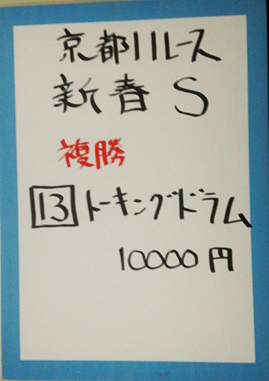 京都11レース
新春S
複勝
13 トーキングドラム
10000円